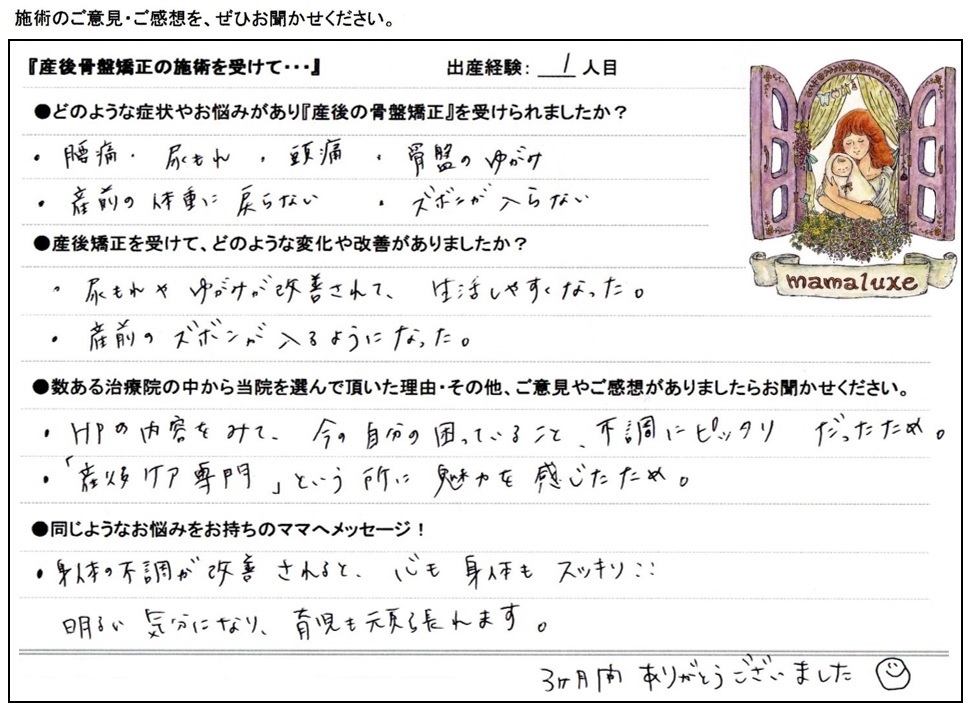 施術のご意見・ご感想を、ぜひお聞かせください。
『産後骨盤矯正の施術を受けて・・・』 出産経験： 1 人目
●どのような症状やお悩みがあり『産後の骨盤矯正』を受けられましたか？
・腰痛・ 尿もれ ・頭痛 ・骨盤のゆがみ
・産前の体重に戻らない ・ズボンが入らない
●産後矯正を受けて、どのような変化や改善がありましたか？
・尿もれやゆがみが改善されて、生活しやすくなった。
・産前のズボンが入るようになった。
mamaluxe
●数ある治療院の中から当院を選んで頂いた理由・その他、ご意見やご感想がありましたらお聞かせください。
・HPの内容をみて、今の自分の困っていること、不調にピッタリ だったため。
・「産後ケア専門」という所に魅力を感じたため。
●同じようなお悩みをお持ちのママへメッセージ！
・身体の不調が改善されると、心も身体もスッキリ::
明るい気分になり、育児も頑張れます。
3ヶ月間ありがとうございました